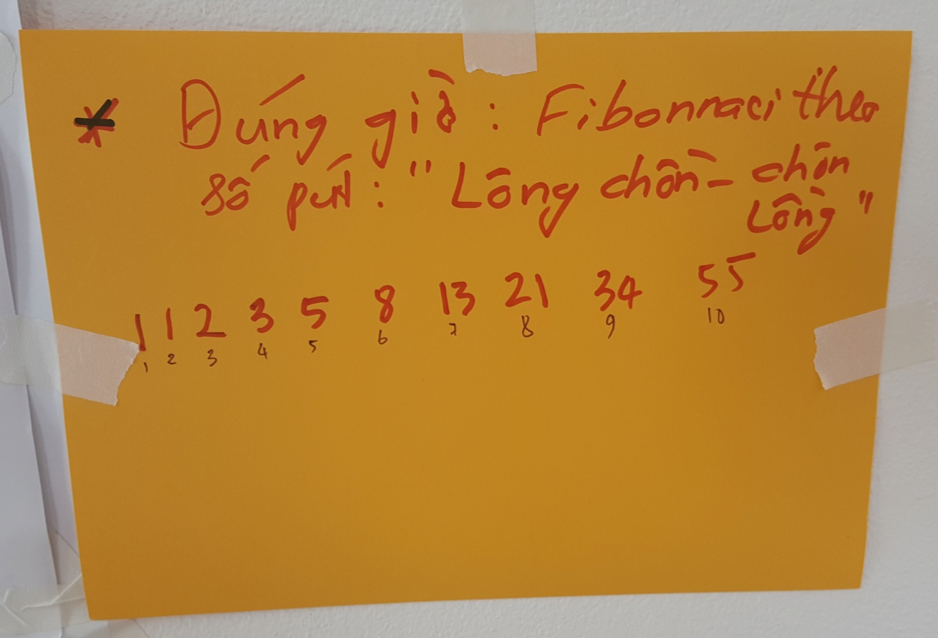 * Đúng giờ: Fibonnaci theo
số phút: "Lông chồn - chồn
Lông"
1 1 2 3 5 8 13 21 34 55
1 2 3 4 5 6 7 8 9 10